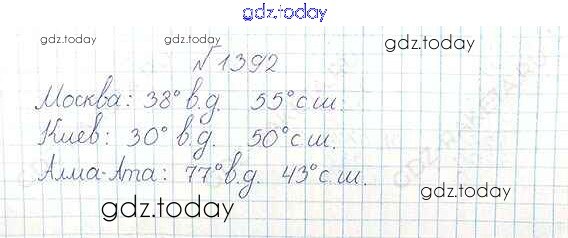 gdz.today
gdz.today gdz.today gdz.today
№1392
Москва: 38° в.д. 55° с.ш.
Киев: 30° в.д. 50° с.ш.
Алма-Ата: 77° в.д. 43° с.ш.
gdz.today
gdz.today